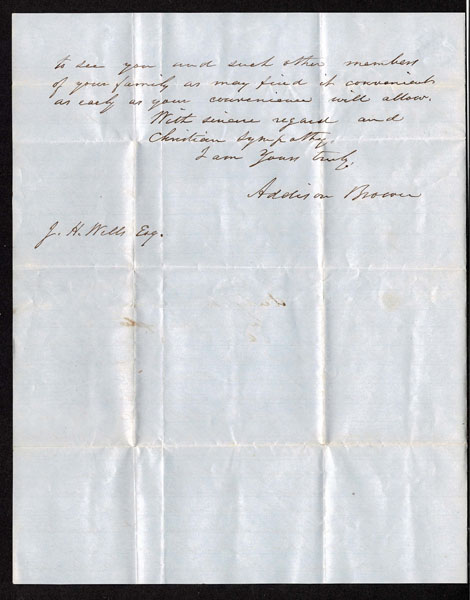 to see you and such other members
of your family as may find it convenient
as early as your convenience will allow.
With sincere regard and
Christian sympathy.
I am Yours truly,
Addison Brown
J. H. Wells Esq.